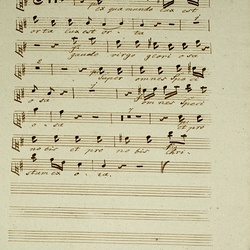 ex qua mundo lux est
orta lux est or - ta
Gaude virgo glori osa
Super omnes Speci
osa omnes Speci
o - sa et pro
nobis et pro no bis Chri
stum ex o - ra.